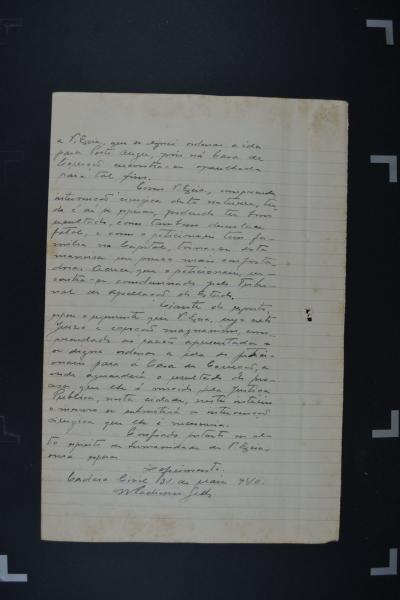 a V. Excia, que se digne ordenar a ida
para Porto Alegre, pois na Casa de
Correcção encontra-se
para tal fim.
Como V. Excia, comprehende,
intervenção cirurgica desta natureza, tu-
do é de se esperar, podendo ter bom
resultado, como tambem
fatal, e como o peticionario tem fa-
milia na Capital, torna-se desta
maneira um pouco mais conforta-
dora. Accresce que o peticionario, en-
contra-se condemnado pelo Tribu-
nal de Appellação do Estado.
Deante do exposto,
espera o requerente que V. Excia, cujo
Juizo e coração magnanimo, com-
as razões apresentadas
se digne ordenar a ida do peticio-
nario para a Casa de Correcção,
onde aguardará o resultado do pro-
cesso que lhe é movido pela Justiça
Publica, nesta cidade,
o mesmo se submeterá a intervenção
cirurgica que lhe é necessaria.
Confiado no al-
to espirito de humanidade de V. Excia
espera
Deferimento.
Cadeia Civil 31 de Maio 940.